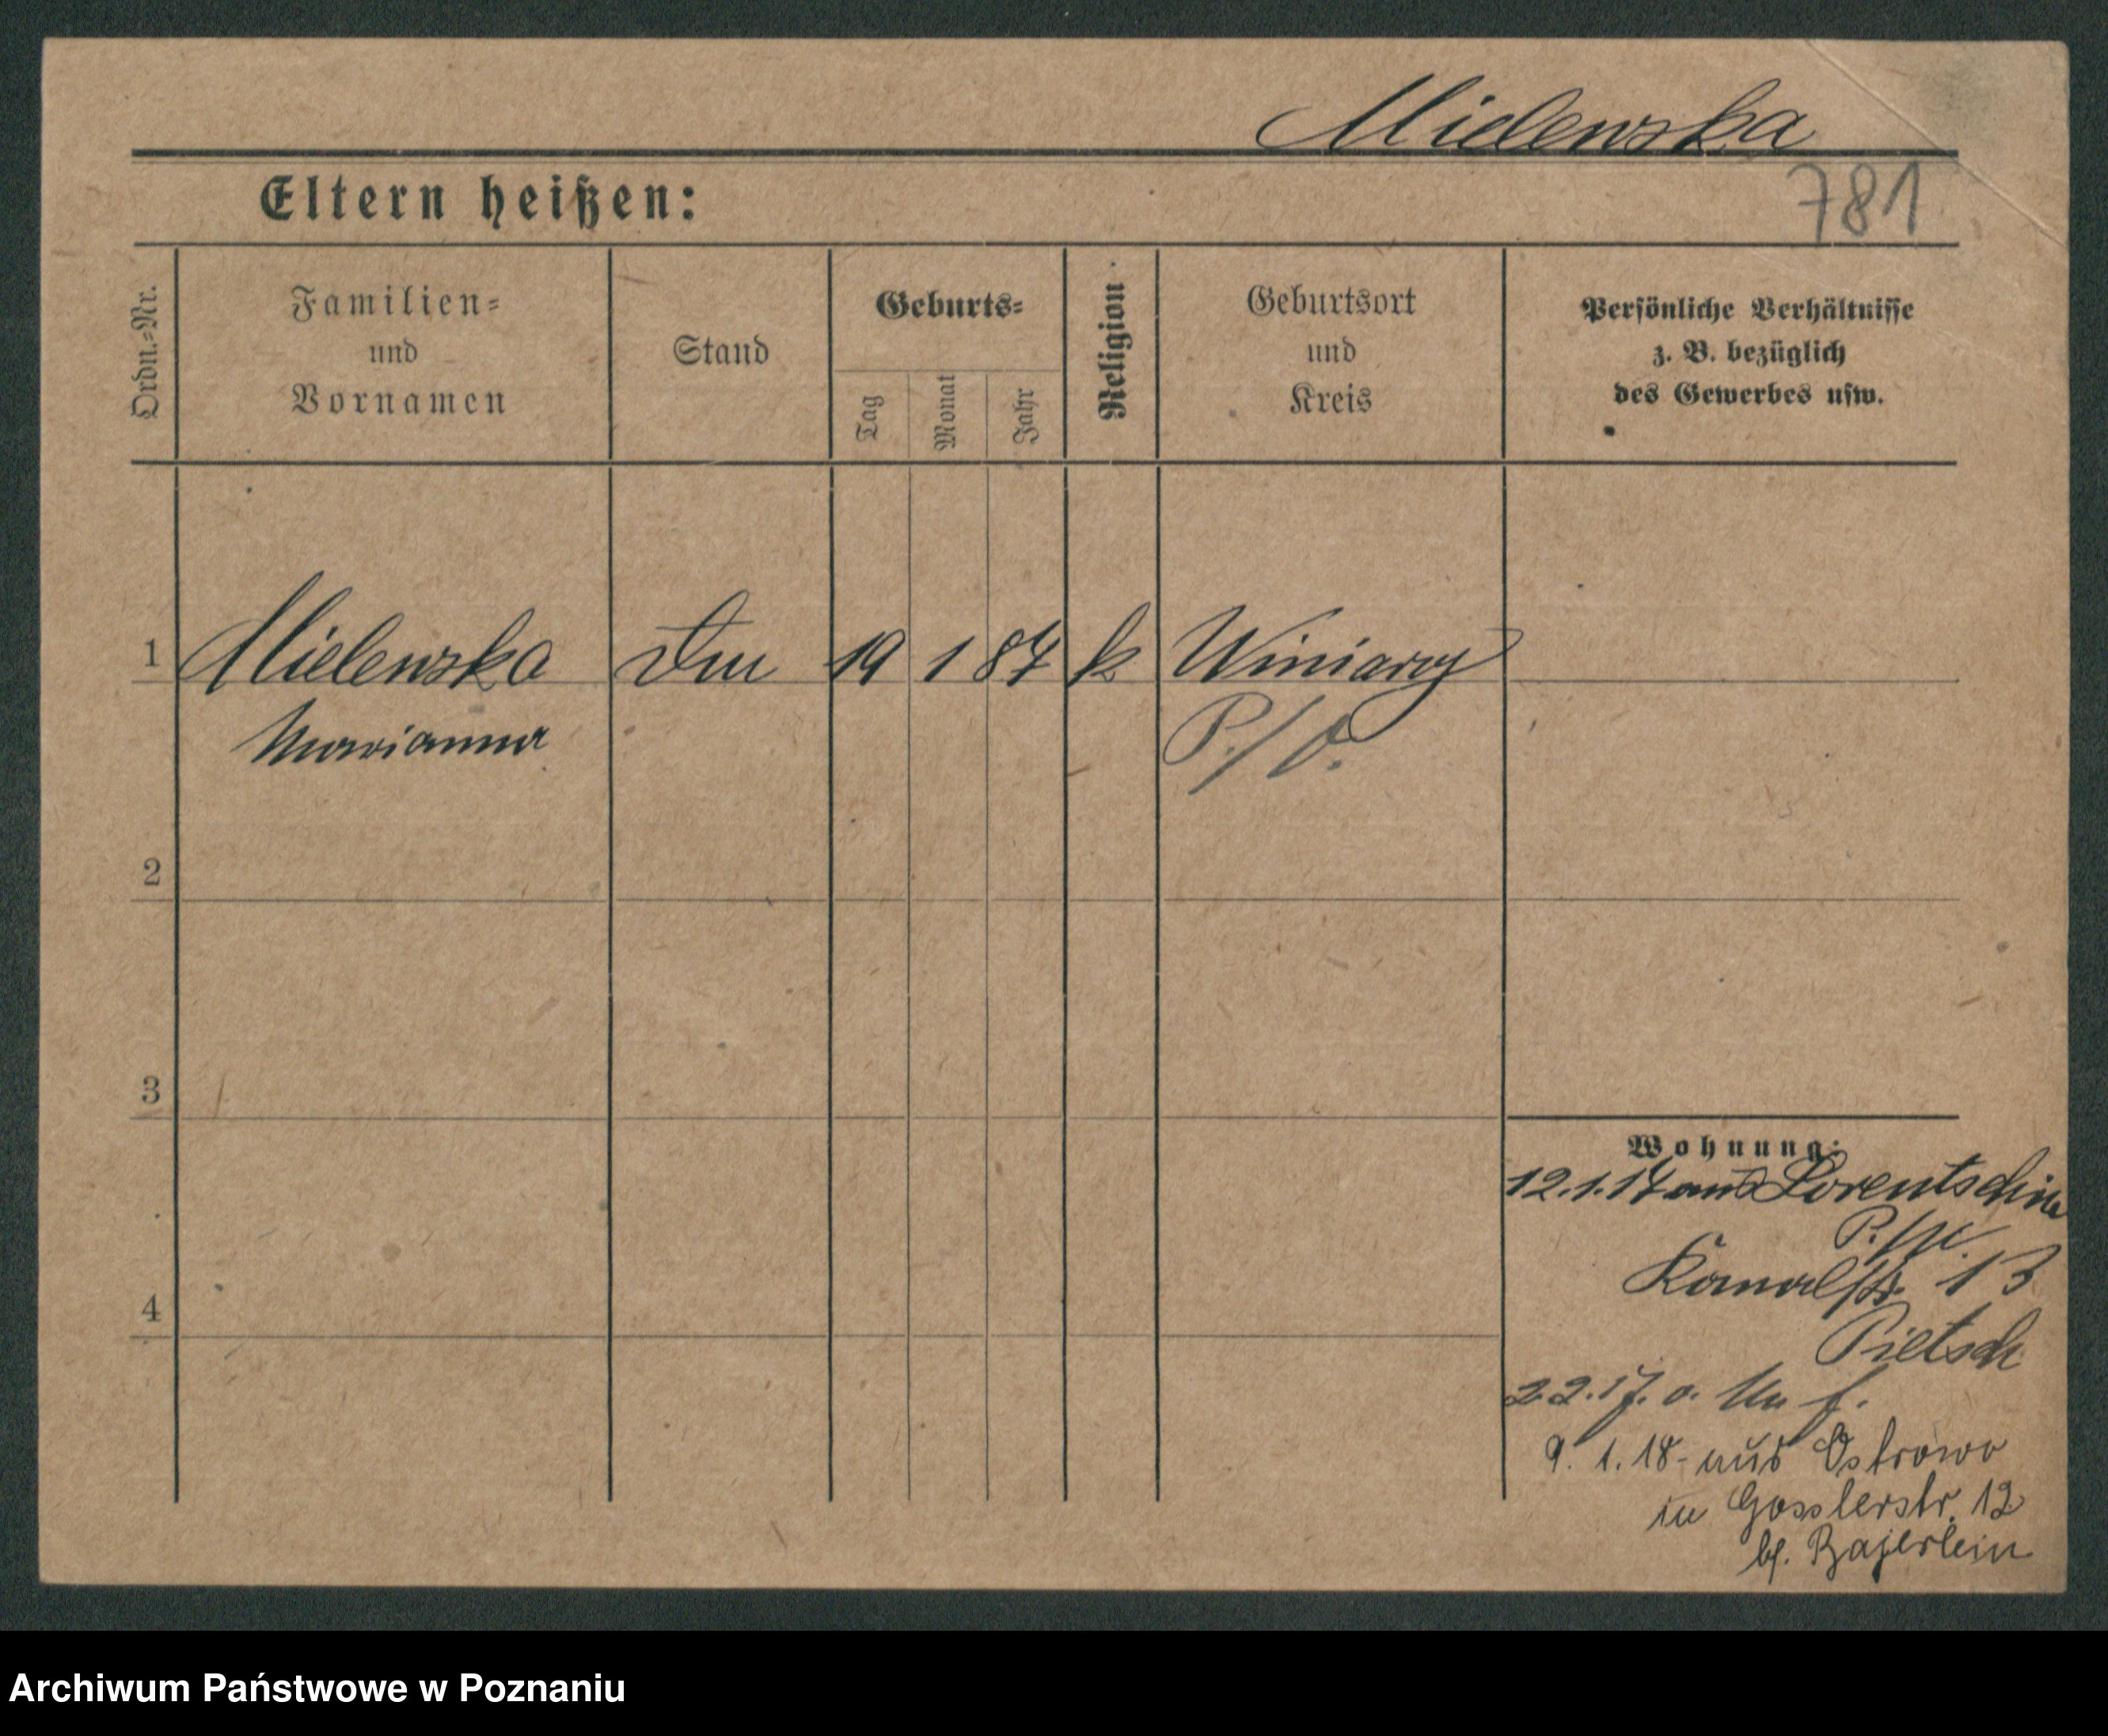 Mielewska
781
Eltern heißen:
Ordn.-Nr.
Familien-
und
Vornamen
Stand
Geburts-
Tag
Monat
Jahr
Religion
Geburtsort
und
Kreis
Persönliche Verhältnisse
z. B. bezüglich
des Gewerbes usw.
1 Mielewska 19 1 87 k Winiary
Marianna P./O.
2
3
4
Wohnung:
12.1.17 aus Lorentschin
Kanalstr. 13
Pietsch
2.2.17.
9. 1. 18 - aus Ostrowo
in Gosslerstr. 12
bf. Bajerlein
Archiwum Państwowe w Poznaniu